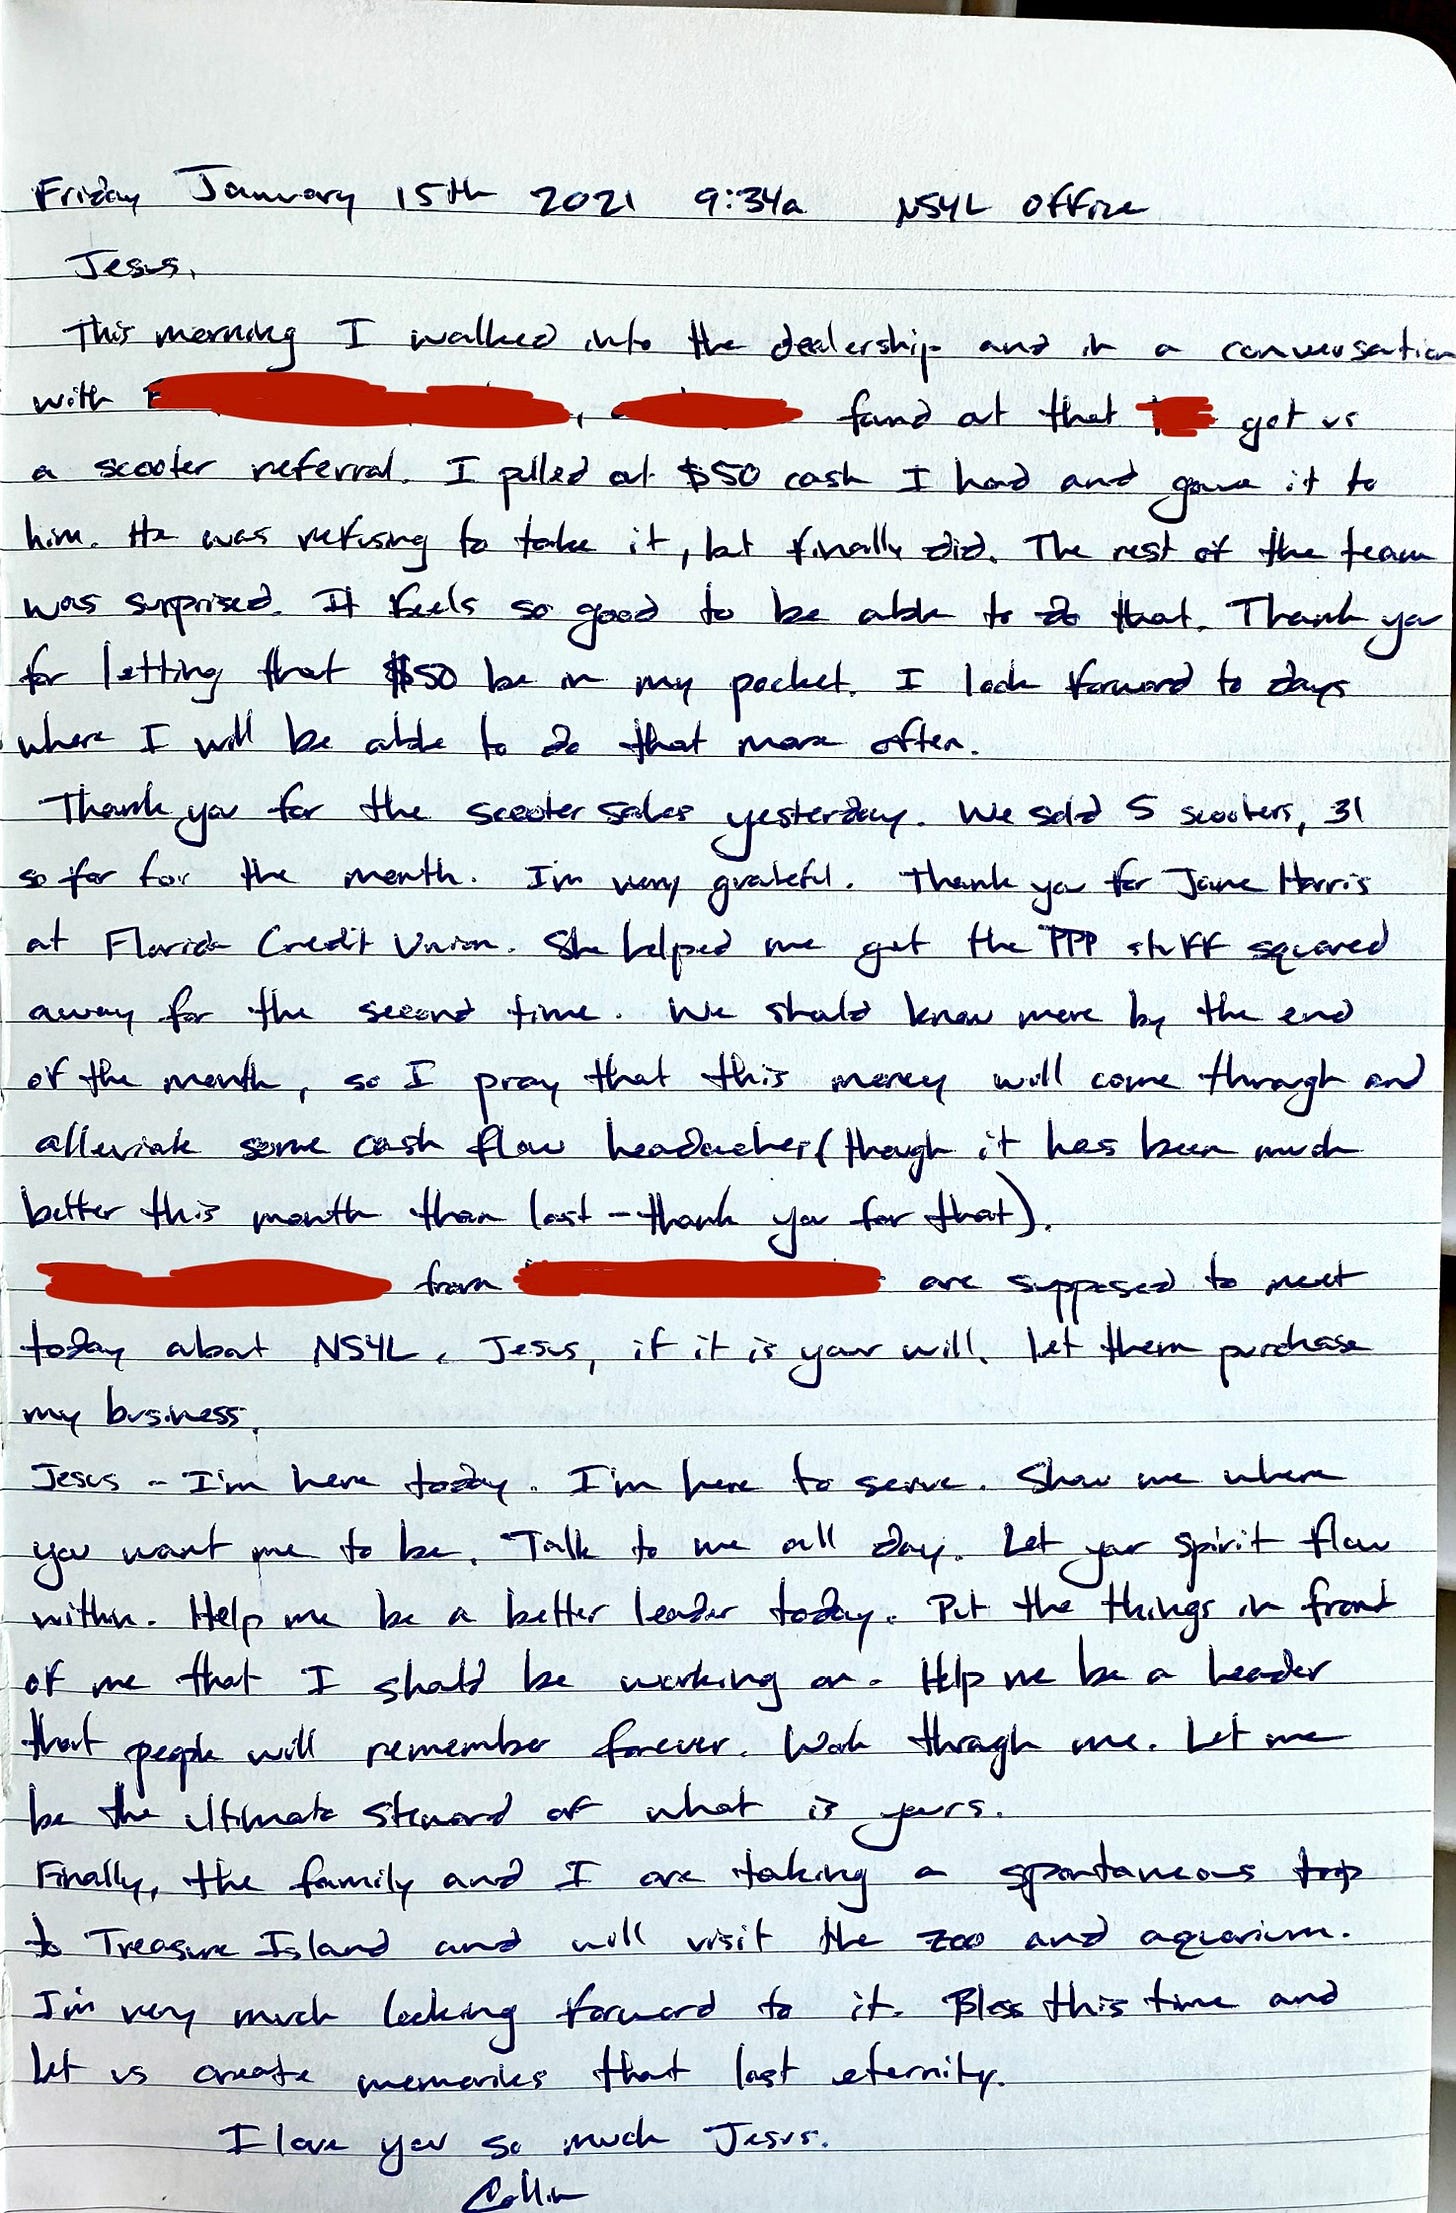 Friday January 15th 2021 9:34a NS4L office
Jesus,
This morning I walked into the dealership and in a conversation
with , found out that got us
a scooter referral. I pulled out $50 cash I had and gave it to
him. He was refusing to take it, but finally did. The rest of the team
was surprised. It feels so good to be able to do that. Thank you
for letting that $50 be in my pocket. I look forward to days
where I will be able to do that more often.
Thank you for the scooter sales yesterday. We sold 5 scooters, 31
so far for the month. I'm very grateful. Thank you for Jane Harris
at Florida Credit Union. She helped me get the PPP stuff squared
away for the second time. We should know more by the end
of the month, so I pray that this money will come through and
alleviate some cash flow headaches (though it has been much
better this month than last - thank you for that).
from are supposed to meet
today about NS4L. Jesus, if it is your will, let them purchase
my business.
Jesus - I'm here today. I'm here to serve. Show me where
you want me to be. Talk to me all day. Let your spirit flow
within. Help me be a better leader today. Put the things in front
of me that I should be working on. Help me be a leader
that people will remember forever. Work through me. Let me
be the ultimate steward of what is yours.
Finally, the family and I are taking a spontaneous trip
to Treasure Island and will visit the zoo and aquarium.
I'm very much looking forward to it. Bless this time and
let us create memories that last eternity.
I love you so much Jesus.
Collin